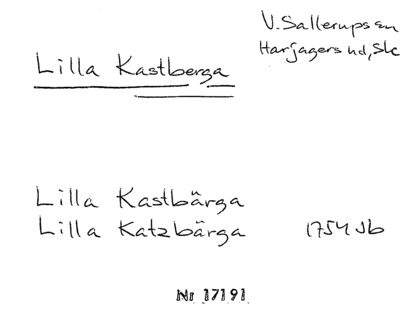 V. Sallerups sn
Harjagers hd, Sk
Lilla Kastberga
Lilla Kastbärga
Lilla Katzbärga 1754 Jb
Nr 17191